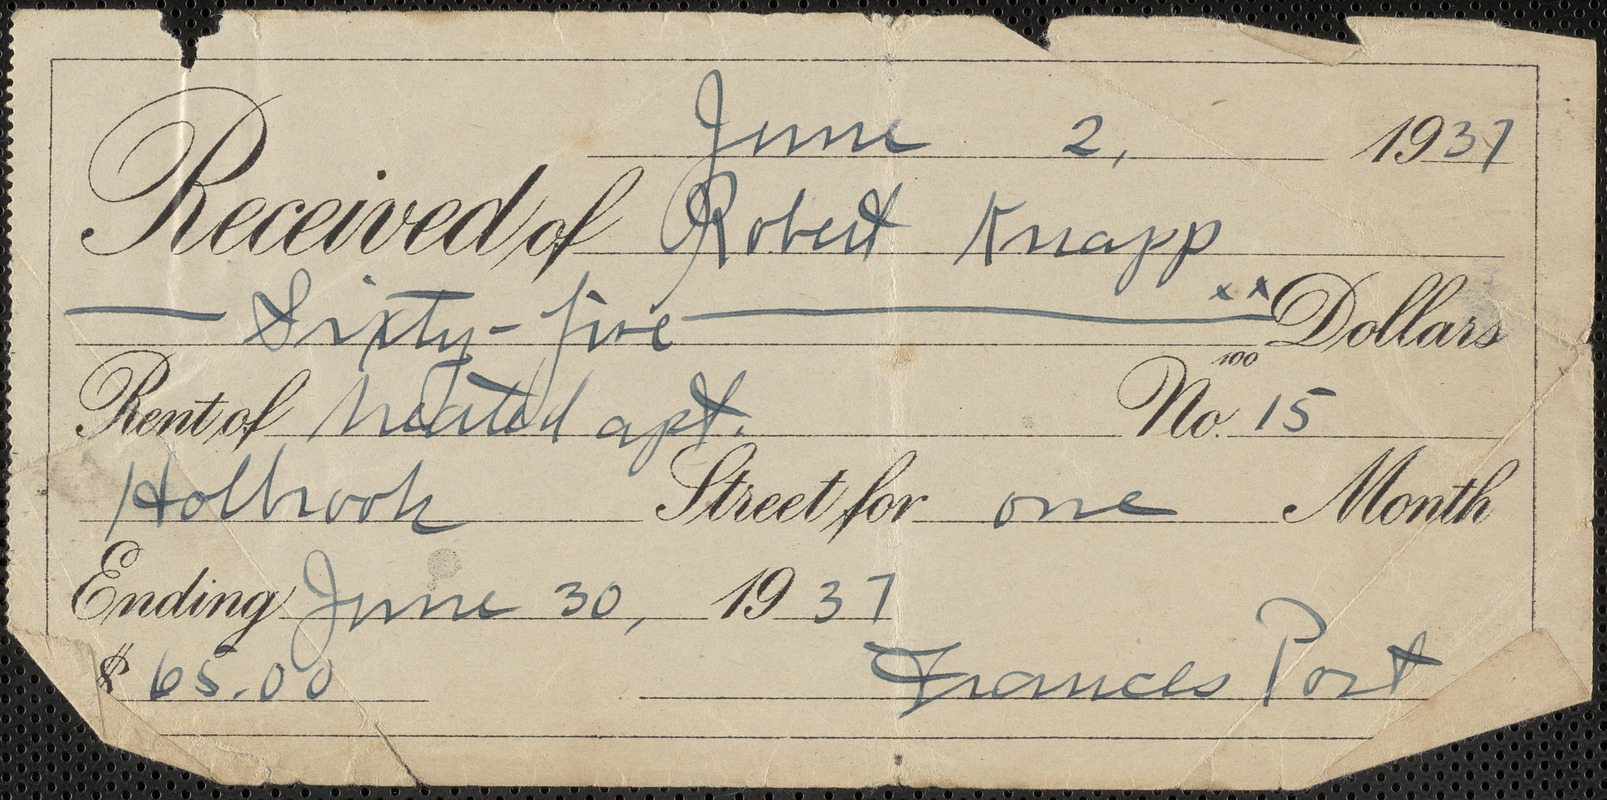 June 2, 1937
Received of Robert Knapp
Sixty-five xx/100 Dollars
Rent of heated apt. No. 15
Holbrook Street for one Month
Ending June 30, 1937
$65.00 Frances Post